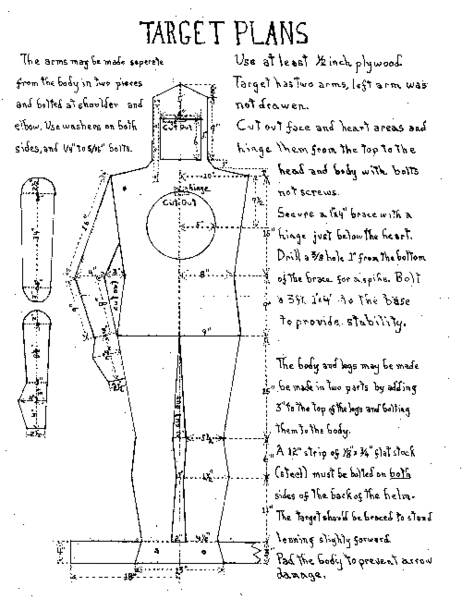 TARGET PLANS
The arms may be made seperete
from the body in two pieces
and bolted at shoulder and
elbow. Use washers on both
sides, and 1/4" to 5/16" bolts.
Use at least 1/2 inch plywood
Target has two arms, left arm was
not drawen.
Cut out face and heart areas and
hinge them from the top to the
head and body with bolts
not screws.
Secure a 1"x4" brace with a
hinge just below the heart.
Drill a 3/8 hole 1" from the bottom
of the brace for a spike. Bolt
a 3ft. 1"x4" to the base
to provide stability.
The body and legs may be made
be made in two parts by adding
3" to the top of the legs and bolting
them to the body.
A 12" strip of 1/8" x 3/4" flat stock
(steel) must be bolted on both
sides of the back of the helm.
The target should be braced to stand
leaning slightly forward.
Pad the body to prevent arrow
damage.
CUT OUT
10"
hinge
CUT OUT
8"
9"
CUT OUT
18"